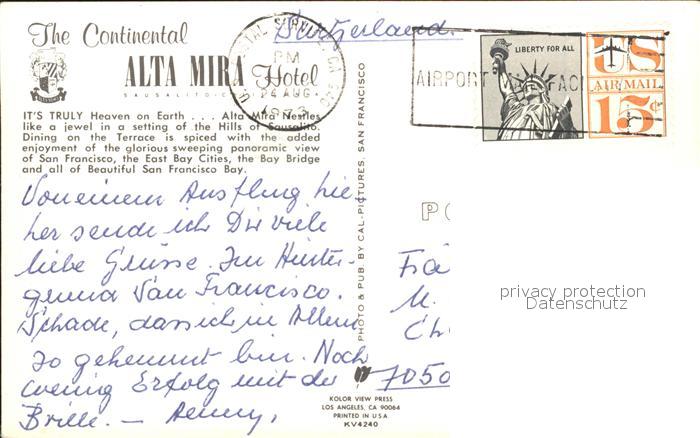 Switzerland.
The Continental
ALTA MIRA Hotel
SAUSALITO · C
PM
24 AUG
1973
AIRPORT
LIBERTY FOR ALL
US
AIR MAIL
15¢
IT'S TRULY Heaven on Earth . . . Alta Mira Nestles
like a jewel in a setting of the Hills of Sausalito.
Dining on the Terrace is spiced with the added
enjoyment of the glorious sweeping panoramic view
of San Francisco, the East Bay Cities, the Bay Bridge
and all of Beautiful San Francisco Bay.
Von einem Ausflug hie
her sende ich Dir viele
liebe Grüsse. Im Hinter-
grund San Francisco.
Schade, dass ich in Allem
so gehemmt bin. Noch
wenig Erfolg mit der
Brille. —
PHOTO & PUB. BY CAL-PICTURES, SAN FRANCISCO
PO
Frä
M.
Ch
7050
privacy protection
Datenschutz
KOLOR VIEW PRESS
LOS ANGELES, CA 90064
PRINTED IN U.S.A.
KV4240